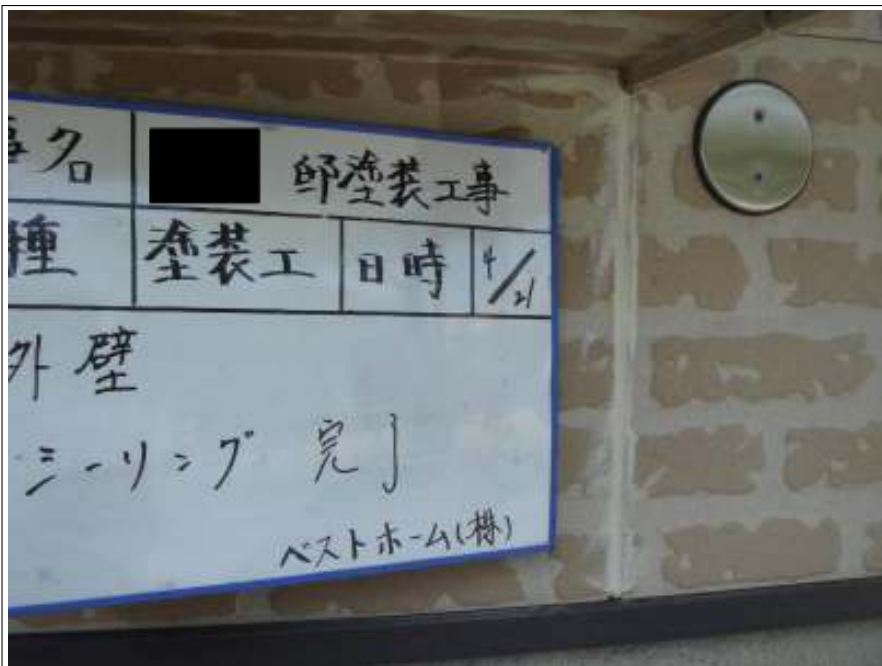 事名 邸塗装工事
種 塗装工 日時 4/21
外壁
シーリング 完了
ベストホーム(株)